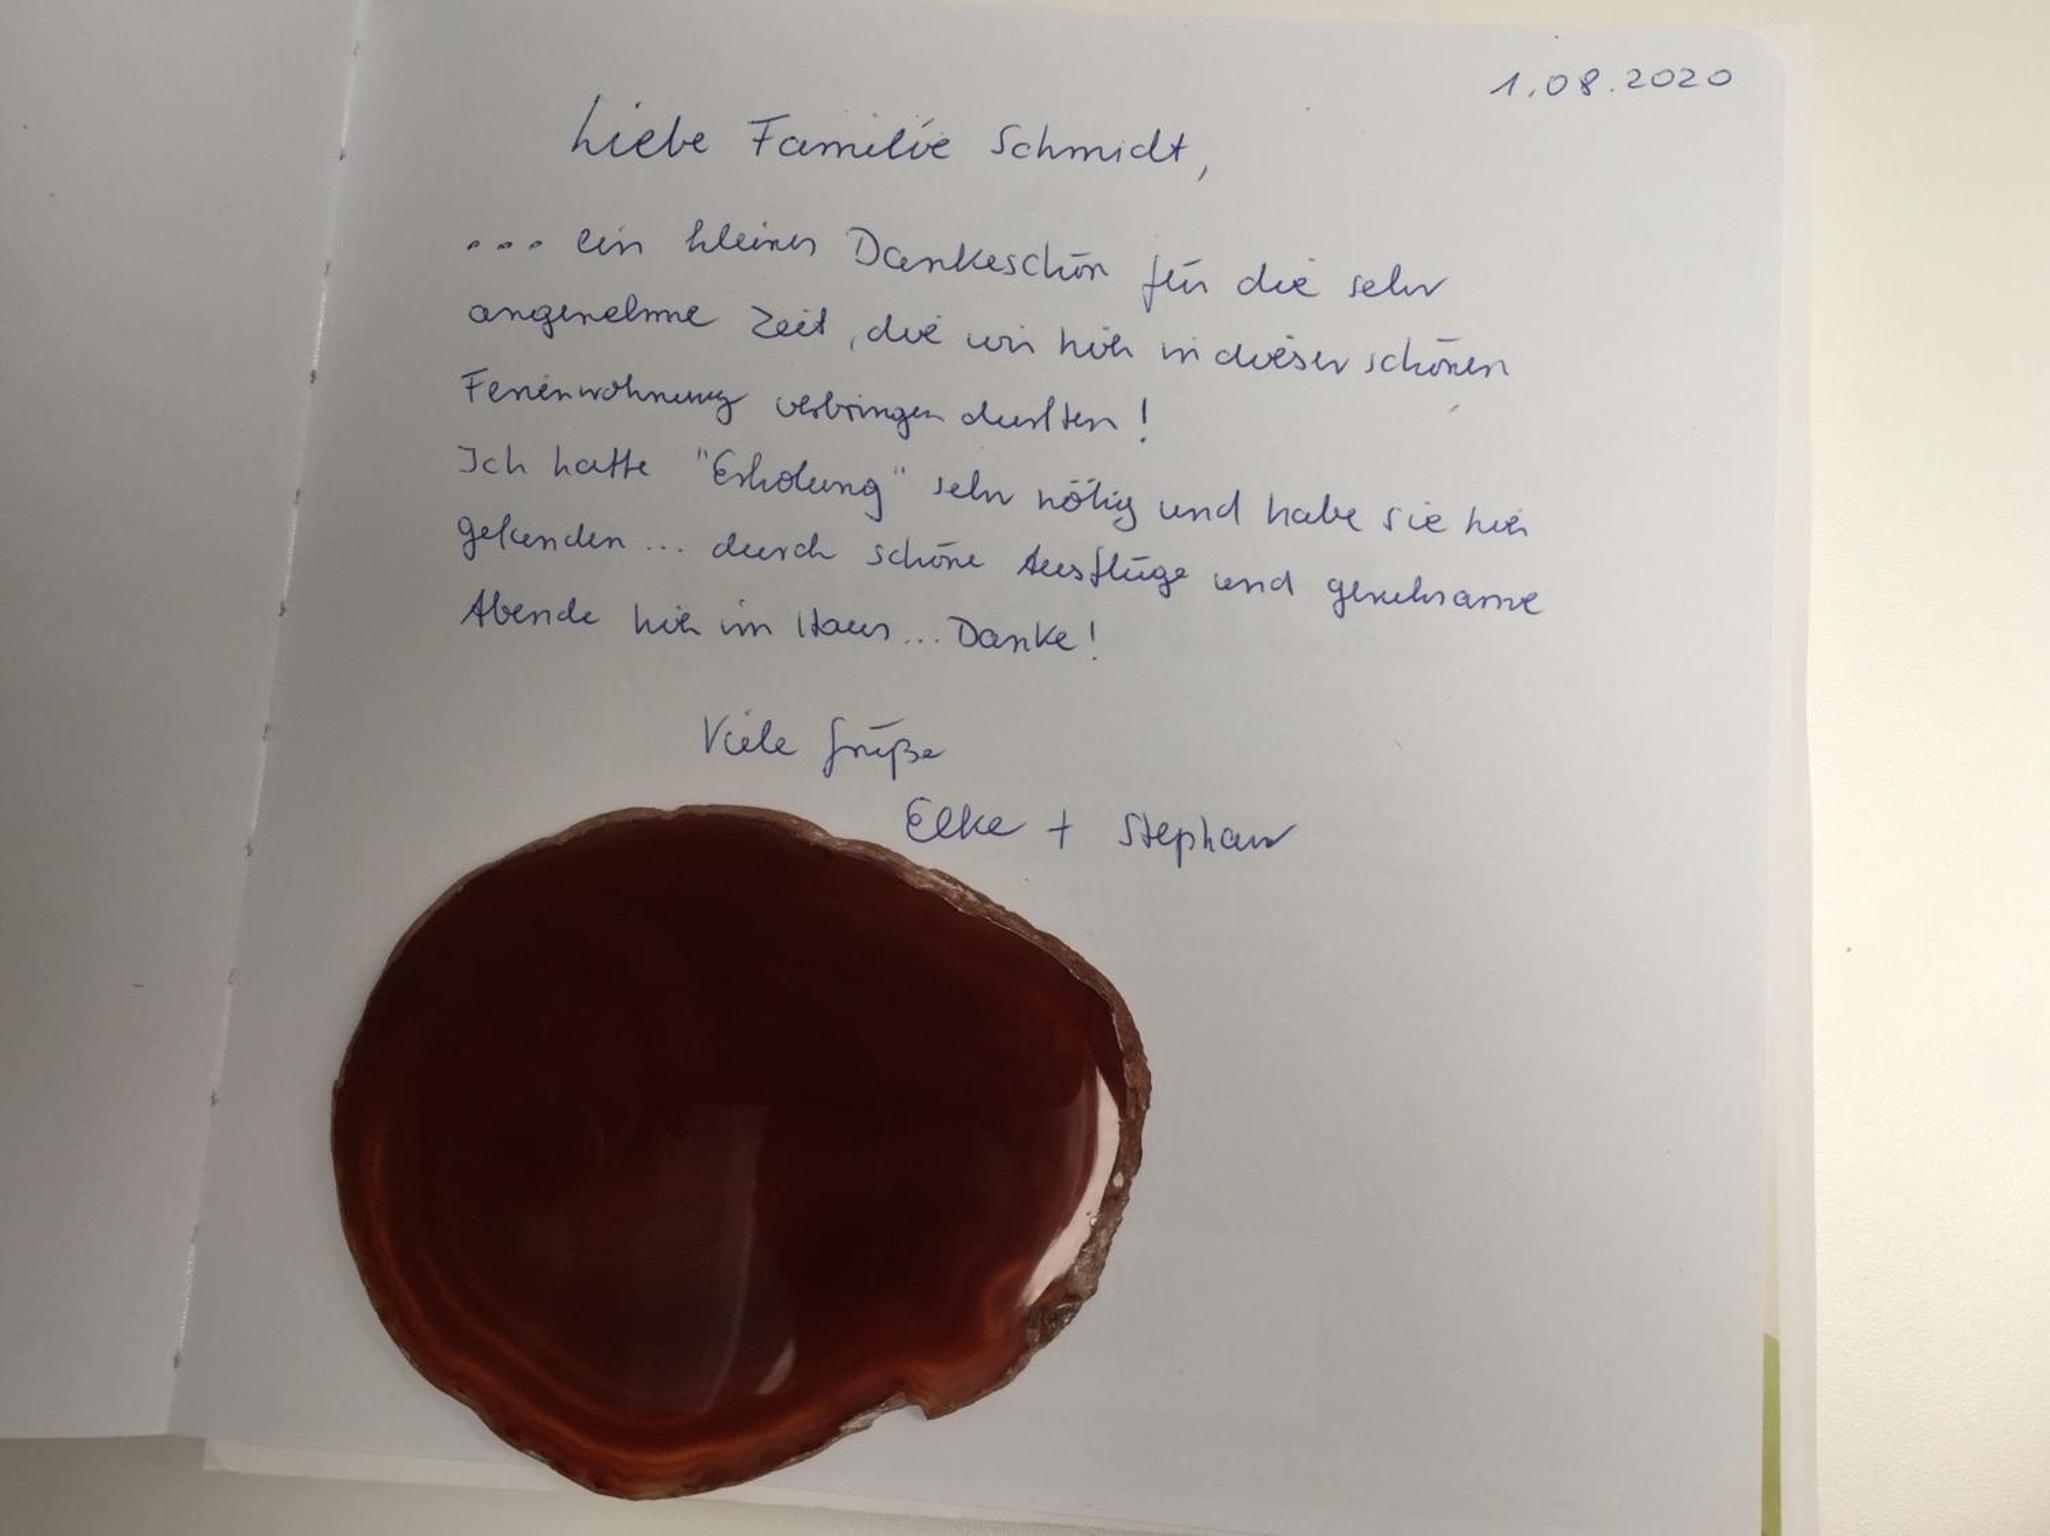 1.08.2020
Liebe Familie Schmidt,
... ein kleines Dankeschön für die sehr
angenehme Zeit, die wir hier in dieser schönen
Ferienwohnung verbringen durften!
Ich hatte "Erholung" sehr nötig und habe sie hier
gefunden ... durch schöne Ausflüge und geruhsame
Abende hier im Haus ... Danke!
Viele Grüße
Elke + Stephan